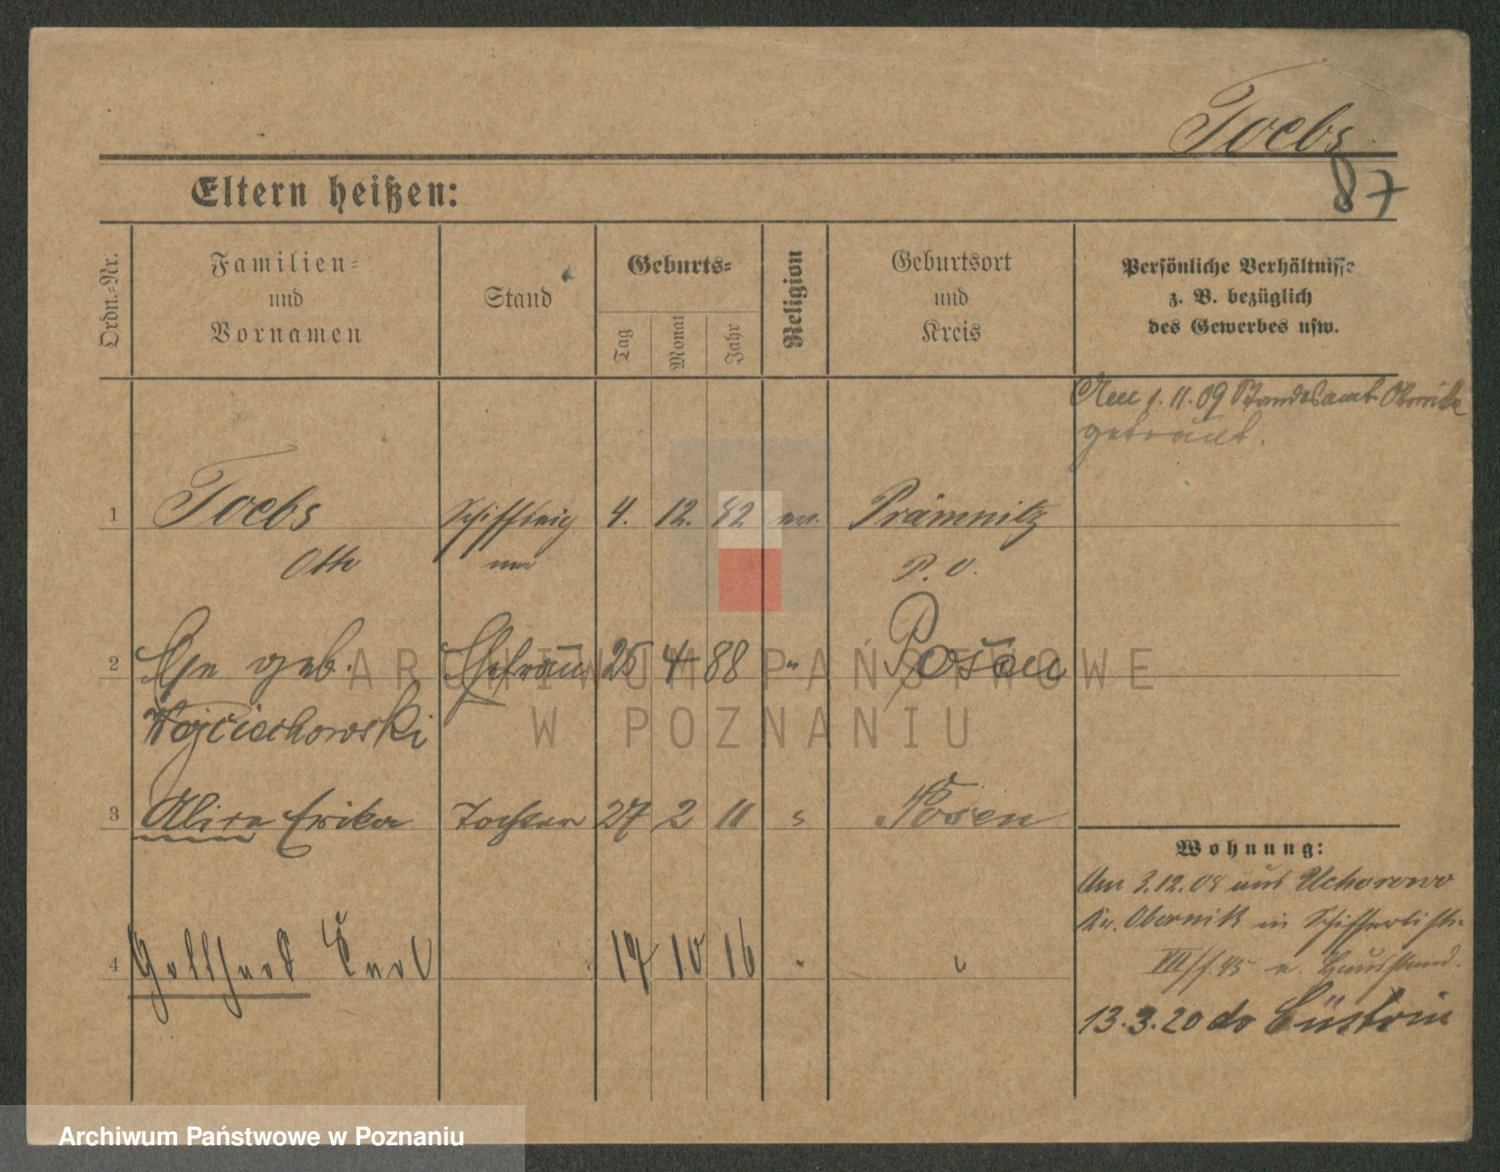 Toebs
Eltern heißen:
87
Ordn.-Nr.
Familien-
und
Vornamen
Stand
Geburts-
Tag
Monat
Jahr
Religion
Geburtsort
und
Kreis
Persönliche Verhältnisse
z. B. bezüglich
des Gewerbes usw.
11.09 Standesamt Obornik
getraut.
1 Toebs 4. 12. 82 ev. Prämnitz
Otto P. O.
2 geb. Ehefrau 25 4 88 " Posen
Wojciechowski
3 Erika Tochter 27 2 11 Posen
4 Gotthard Carl 17 10 16 "
Wohnung:
Am 3.12.08 aus Uchorowo
Kr. Obornik in
13.3.20 do Cüstrin
ARCHIWUM PAŃSTWOWE
W POZNANIU
Archiwum Państwowe w Poznaniu